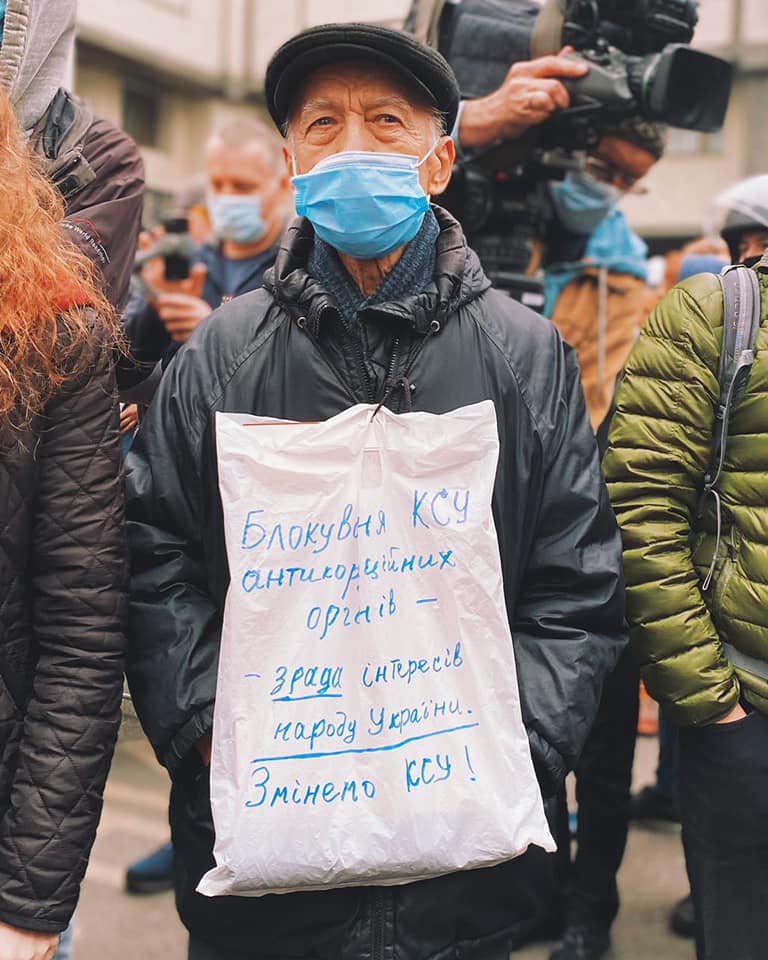 Блокувня КСУ
антикорційних
оргнів –
– зрада інтересів
народу України.
Змінемо КСУ!